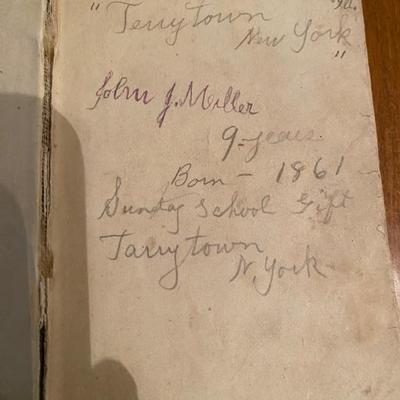 " Terrytown
New York
"
John J. Miller
9-years.
Born - 1861
Sunday School Gift
Tarrytown
N. York